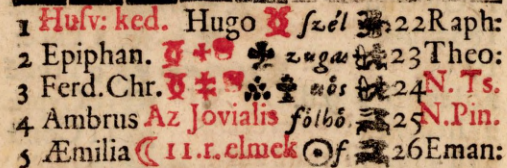 1 Husv: ked. Hugo ſzél 22 Raph:
2 Epiphan. zugas 23 Theo:
3 Ferd. Chr. 24 N. Ts.
4 Ambrus Az Jovialis fölhö 25 N. Pin.
5 Æmilia ☾ 11. r. elmek ☉ f 26 Eman: